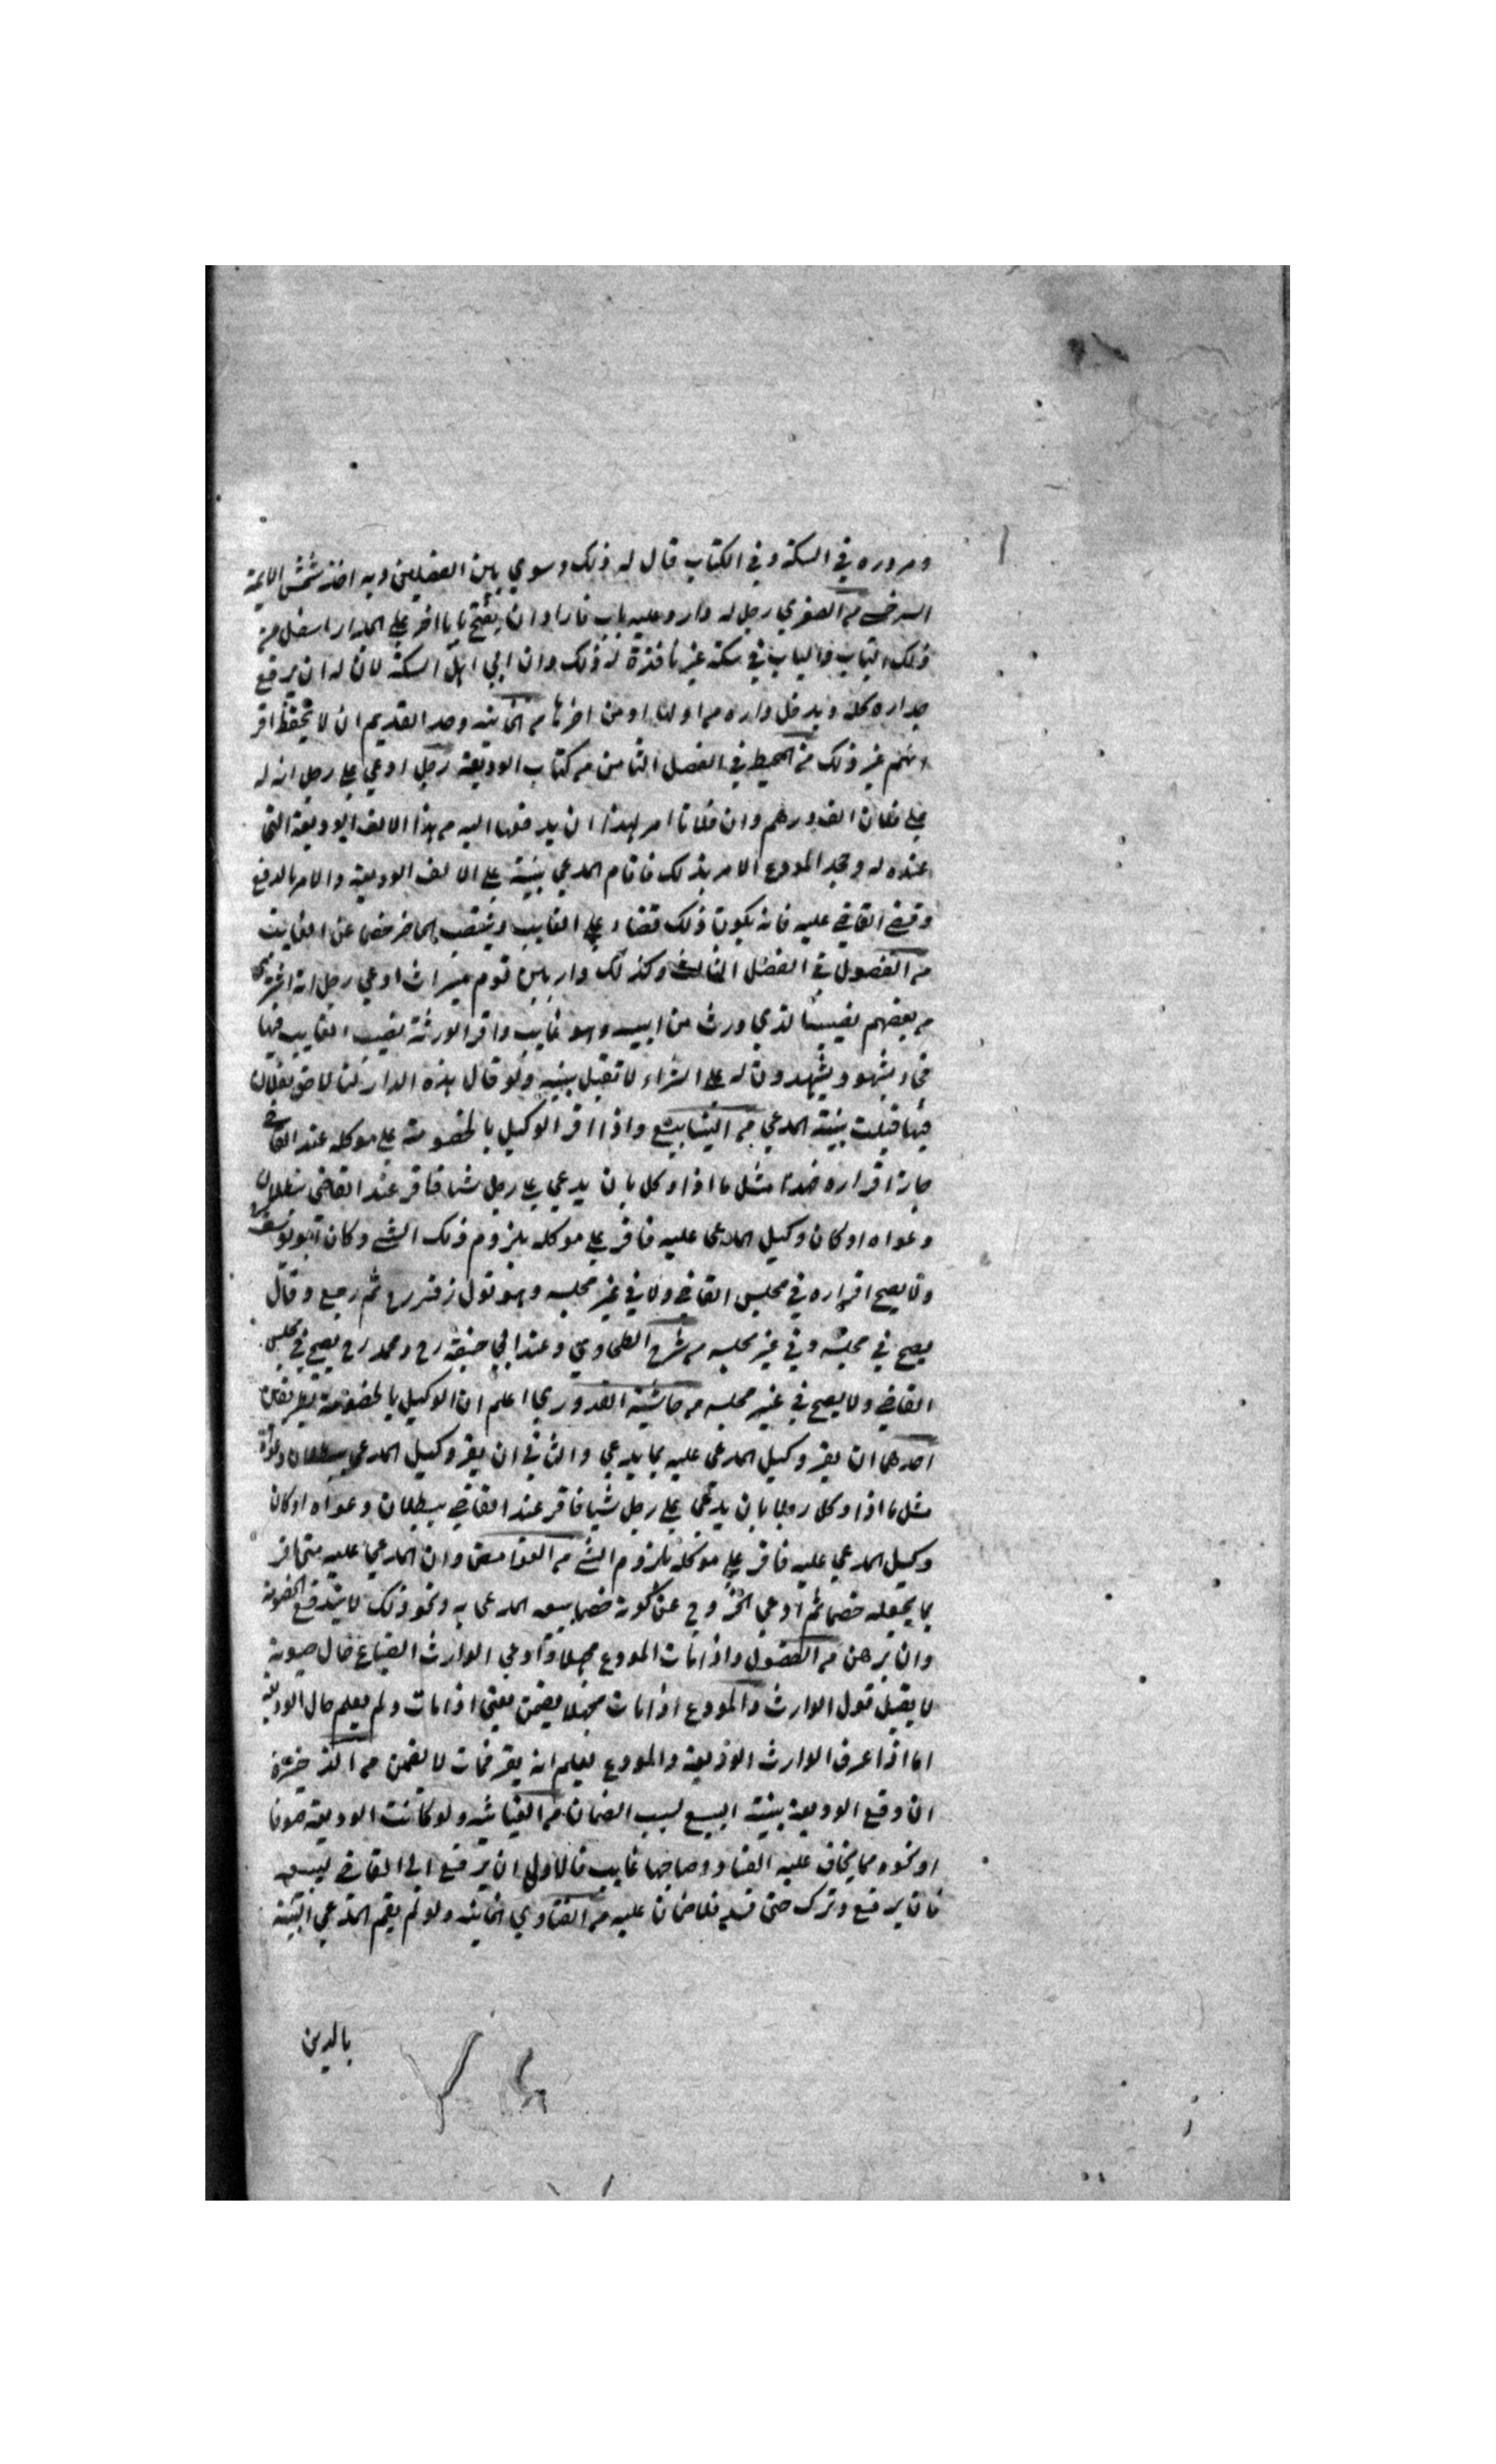 ومروره في السكة وفي الكتاب قال له ذلك وسوي بين الفصلين وبه اخذ شمس الايمة
السرخسي من الصغرى رجل له دار وعليه باب فاراد ان يفتح بابا اخر على الجدار اسفل من
ذلك الباب والباب في سكة غير نافذة له ذلك وان ابي اهل السكة لان له ان يرفع
جداره كله ويدخل داره من اولها او من اخرها من الخانية وحد القديم ان لا يحفظ اقر
انهم غير ذلك من المحيط في الفصل الثامن من كتاب الوديعة رجل ادعي على رجل انه له
على فلان الف درهم وان فلانا امر لهذا ان يدفعها اليه من هذا الالف الوديعة التي
عنده له وجحد المودع الامر بذلك فاقام المدعي بينة على الالف الوديعة والامر بالدفع
وقضى القاضي عليه فانه يكون ذلك قضاء على الغايب وينتصب الحاضر خصما عن الغايب
من الفصول في الفصل الثالث وكذلك دار بين قوم ميراث ادعي رجل انه اشترى
من بعضهم نصيبا لذي ورث من ابيه وهو غايب واقر الورثة نصيب الغايب فيها
فجاء بشهود يشهدون له على الشراء لا تقبل بينته ولو قال هذه الدار لنا لا حق لفلان
فيها قبلت بينة المدعي من الينابيع واذا اقر الوكيل بالخصومة على موكله عند القاضي
جاز اقراره ضده مثل ما اذا وكل بان يدعي على رجل شيا فاقر عند القاضي ببطلان
دعواه او كان وكيل المدعى عليه فاقر على موكله بلزوم ذلك الشي وكان ابو يوسف
ولا يصح اقراره في مجلس القاضي ولا في غير مجلسه وهو قول زفر رح ثم رجع وقال
يصح في مجلسه وفي غير مجلسه من شرح الطحاوي وعند ابي حنيفة رح ومحمد رح يصح في مجلس
القاضي ولا يصح في غير مجلسه من حاشية القدوري اعلم ان الوكيل بالخصومة
احدهما ان يقر وكيل المدعى عليه بما يدعي والثاني ان يقر وكيل المدعي ببطلان دعواه
مثل ما اذا وكل رجلا بان يدعى على رجل شيا فاقر عند القاضي ببطلان دعواه او كان
وكيل المدعي عليه فاقر على موكله بلزوم الشي من الغوامض وان المدعي عليه متى اقر
بما يجعله خصما ثم ادعي الخروج عن كونه خصما ببيعه المدعى به ونحو ذلك لا يندفع الخصومة
وان برهن من الفصول واذا مات المودع مجهلا وادعي الوارث الضياع حال حيوته
لا يقبل قول الوارث والمودع اذا مات مجهلا يضمن يعني اذا مات ولم يعلم حال الوديعة
اما اذا عرف الوارث الوديعة والمودع يعلم انه يعرف فمات لا يضمن من الذخيرة
ان دفع الوديعة بنية البيع لسبب الضمان من الغياثية ولو كانت الوديعة صوفا
او نحوه مما يخاف عليه الفساد وصاحبها غايب فالاولى ان يرفع الى القاضي ليبيعه
فان يرفع وترك حتى فسد فلا ضمان عليه من الفتاوي الخانية ولو لم يقم المدعي البينة
بالدين